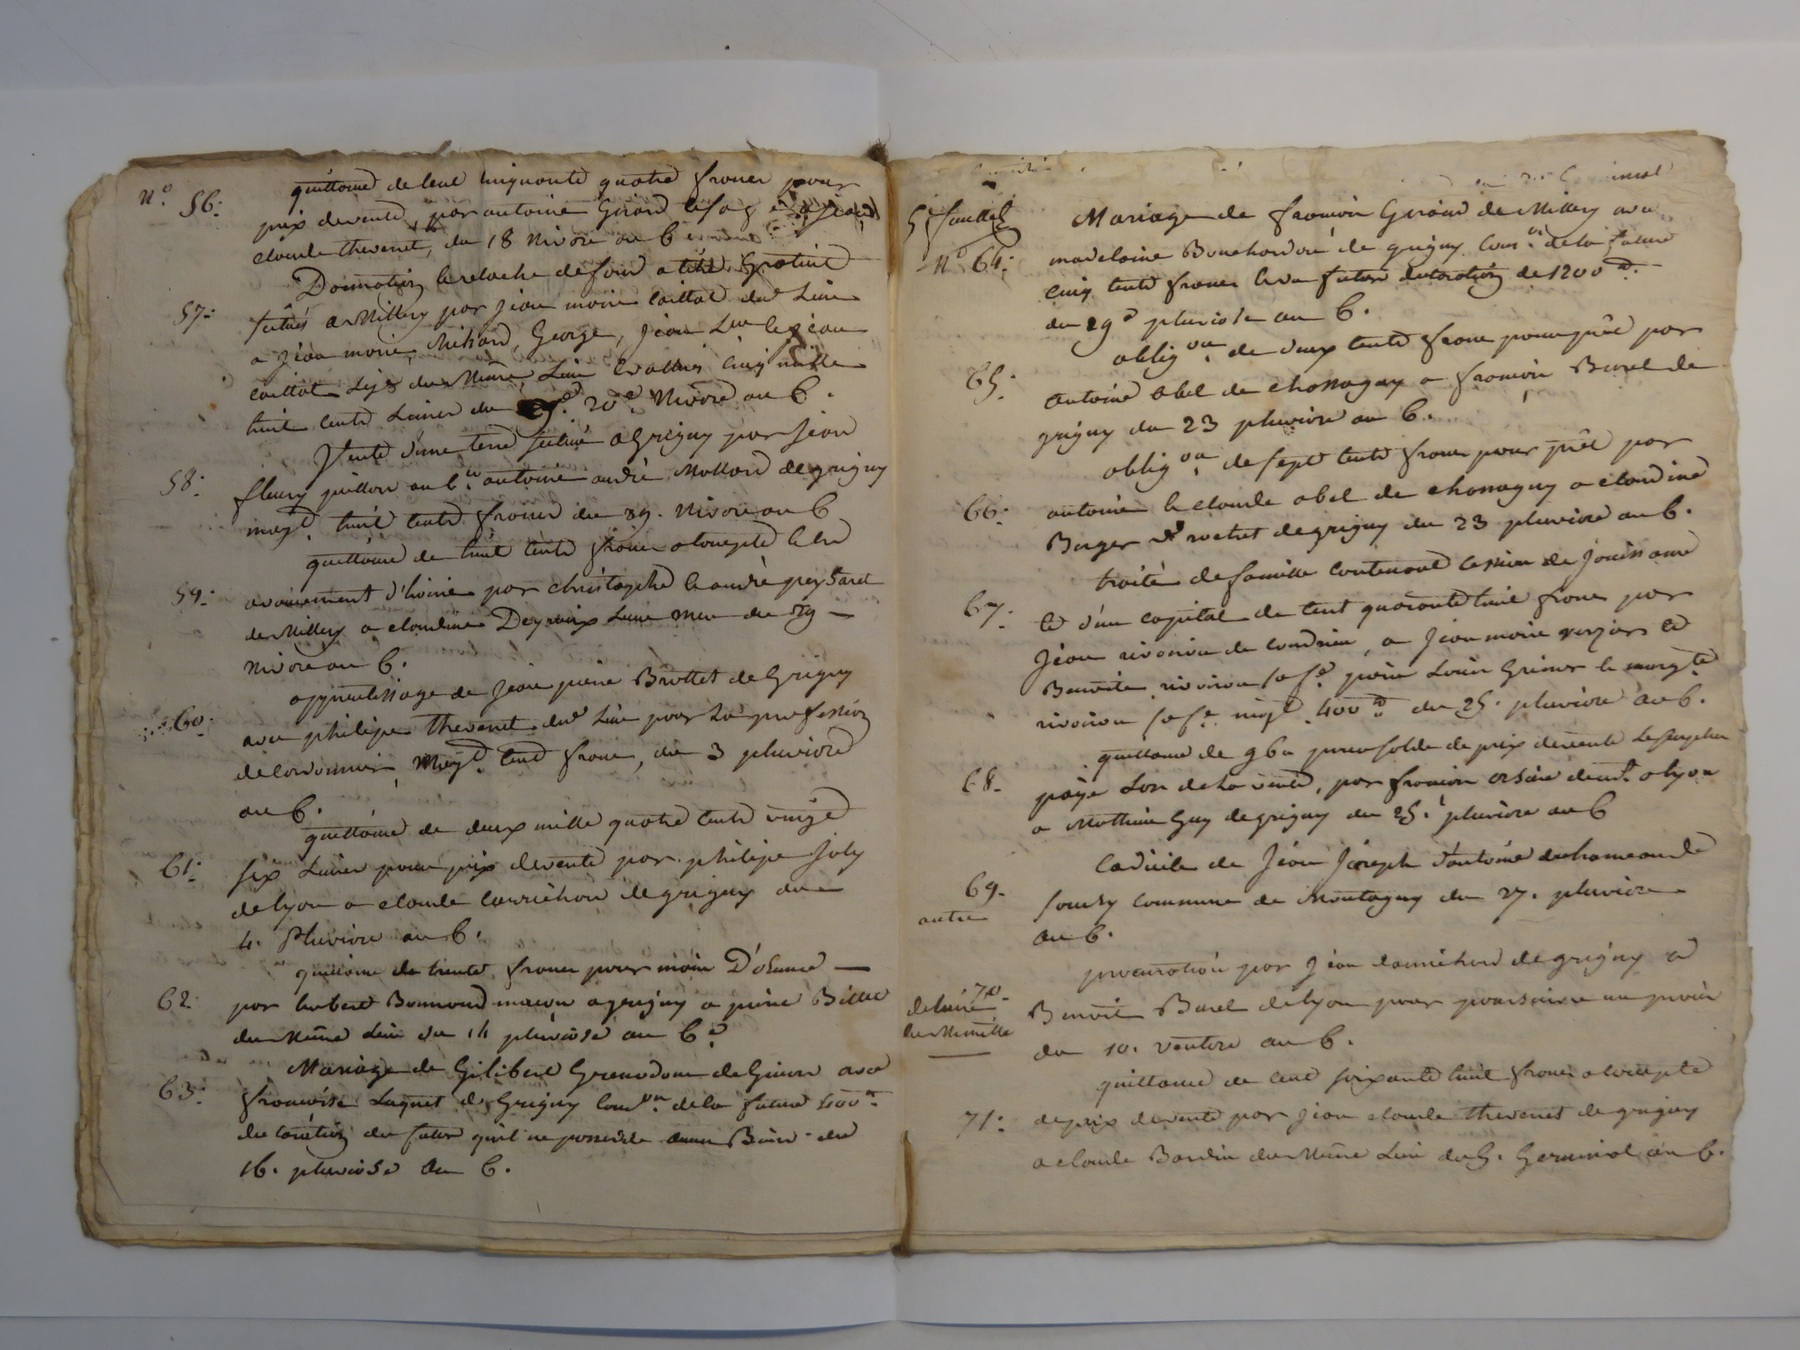 N.o 56. quittance de cent cinquante quatre francs pour
prix de vente, par antoine Girard
claude thevenet, du 18 Nivose an 6
57. Donnation de
situés a Millery par jean marie caillat dud. Lieu
a jean marie, Mihard, George, jean
caillat du Même Lieu cinq mille
huit cents Livres du 20e Nivose an 6.
58. Vente d'une terre située a Grigny par jean
fleury guillon au Cn antoine andré Mollard de grigny
moyt. huit cents francs du 29. Nivose an 6
59. quittance de huit cents francs a compte
par christophe et andré peystaret
de Millery a claudine Deynaix Leur mere du 29
Nivose an 6.
60. apprentissage de jean pierre Brottet de Grigny
avec philipe thevenet dud. Lieu pour La profession
de cordonnier, Moyt. cent francs, du 3 pluviose
an 6.
61. quittance de deux mille quatre cents vingt
six Livres pour prix de vente par philipe joly
de Lyon a claude cornichon de grigny du
4. Pluviose an 6.
62. quittance de trente francs pour main D'œuvre
par Bonnard macon a grigny a pierre Billet
du Même Lieu du 14 pluviose an 6e
63. Mariage de Gilibert Grenadour de Givors avec
francoise Laquet de Grigny Cons.on de la future 400#
declaration du futur qu'il ne possede aucun Biens du
16. pluviose an 6.
germinal
5e feuillet
N.o 64. Mariage de francois Girard de Millery avec
madelaine Bouchardon de grigny Cons.on de la future
cinq cents francs de 1200#.
du 29e pluviose an 6.
65. oblig.on de deux cents francs pour prêt par
antoine abel de chassagny a francois Burel de
grigny du 23 pluviose an 6.
66. oblig.on de sept cents francs pour prêt par
antoine et claude abel de chassagny a claudine
Berger Ve rochet de grigny du 23 pluviose an 6.
67. traité de famille contenant cession de jouissance
et d'un capital de cent quarante huit francs par
jean rivoiron de condrieu, a jean marie verzier et
Benoite rivoiron sa fe. pierre Louis Grimer et margte
rivoiron sa fe. moyt. 400# du 25. pluviose an 6.
68. quittance de 96# pour solde de prix de vente Le surplus
payé Lors de la vente, par francois demt. a Lyon
a Mathieu Guy de grigny du 25. pluviose an 6
69. cedicile de jean joseph d'antoine du hameau de
autre sourzy commune de Montagny du 27. pluviose
an 6.
70. procuration par jean cornichon de grigny a
de liasse Benoit Burel de Lyon pour poursuivre un procès
de Minutte du 10. ventose an 6.
71. quittance de cent soixante huit francs a compte
de prix de vente par jean claude thevenet de grigny
a claude Bardin du Même Lieu du 5. Germinal an 6.